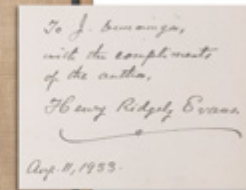 To J. Cummings,
with the compliments
of the author,
Henry Ridgely Evans.
Aug. 11, 1933.